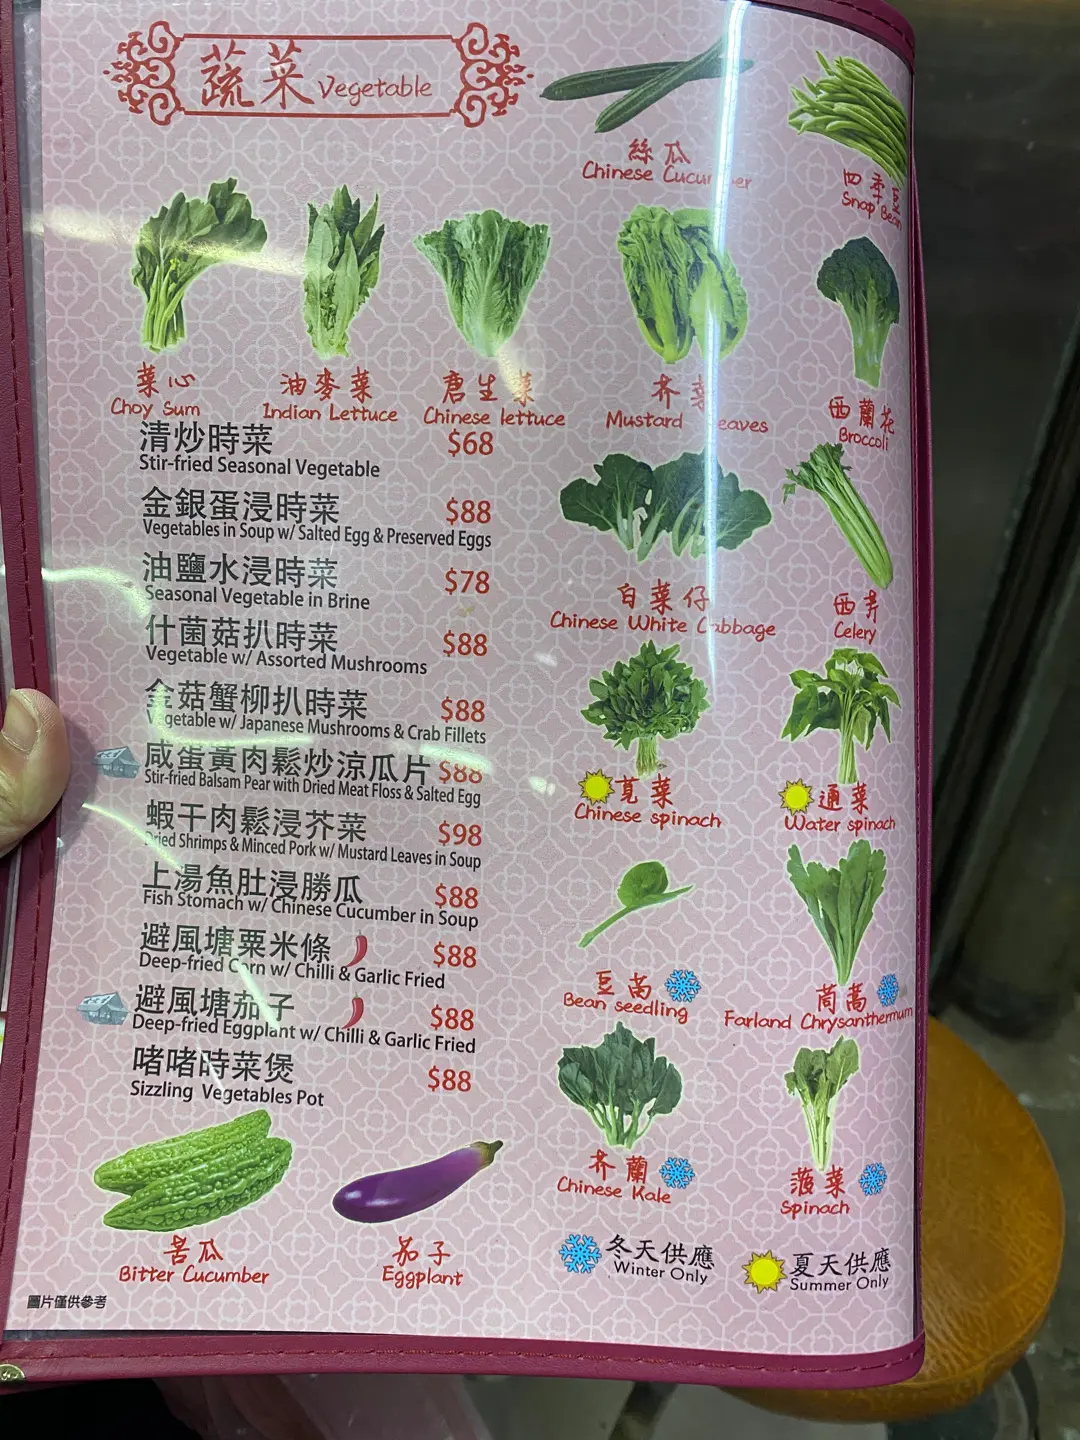 蔬菜 Vegetable
絲瓜
Chinese Cucumber
四季豆
Snap Bean
菜心
Choy Sum
油麥菜
Indian Lettuce
唐生菜
Chinese lettuce
芥菜
Mustard Leaves
西蘭花
Broccoli
清炒時菜 $68
Stir-fried Seasonal Vegetable
金銀蛋浸時菜 $88
Vegetables in Soup w/ Salted Egg & Preserved Eggs
油鹽水浸時菜 $78
Seasonal Vegetable in Brine
什菌菇扒時菜 $88
Vegetable w/ Assorted Mushrooms
金菇蟹柳扒時菜 $88
Vegetable w/ Japanese Mushrooms & Crab Fillets
咸蛋黃肉鬆炒涼瓜片 $88
Stir-fried Balsam Pear with Dried Meat Floss & Salted Egg
蝦干肉鬆浸芥菜 $98
Dried Shrimps & Minced Pork w/ Mustard Leaves in Soup
上湯魚肚浸勝瓜 $88
Fish Stomach w/ Chinese Cucumber in Soup
避風塘粟米條 $88
Deep-fried Corn w/ Chilli & Garlic Fried
避風塘茄子 $88
Deep-fried Eggplant w/ Chilli & Garlic Fried
啫啫時菜煲 $88
Sizzling Vegetables Pot
白菜仔
Chinese White Cabbage
西芹
Celery
莧菜
Chinese spinach
通菜
Water spinach
豆苗
Bean seedling
茼蒿
Farland Chrysanthemum
芥蘭
Chinese Kale
菠菜
Spinach
苦瓜
Bitter Cucumber
茄子
Eggplant
冬天供應
Winter Only
夏天供應
Summer Only
圖片僅供參考